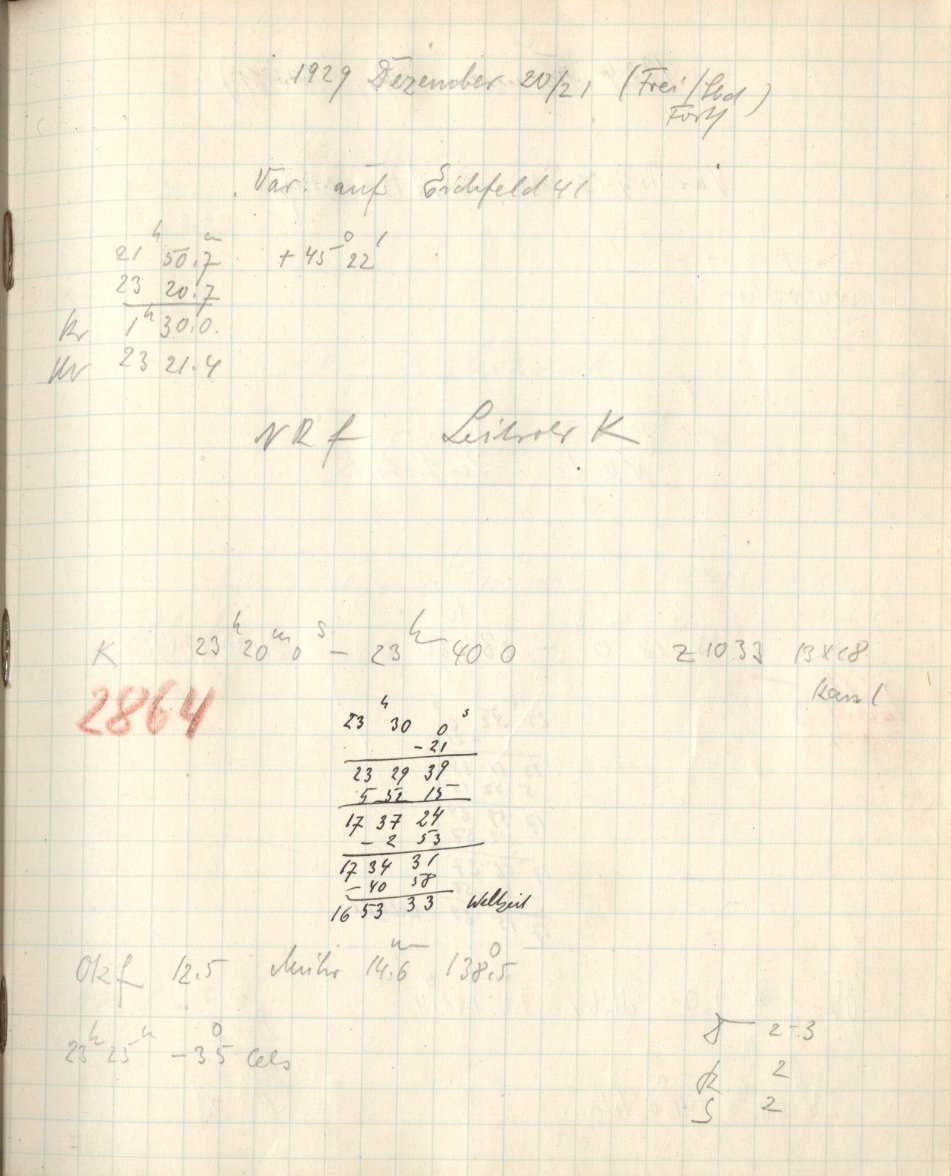 1929 Dezember 20/21 (Frei/Sbd)
Forts
Var. auf Eichfeld 41
21h 50.7m + 45° 22'
23 20.7
1h 30.0.
23 21.4
NRf Leitrohr K
K 23h 20m 0s – 23h 40 0 Z 1033 13x18
2864 Kass 1
23h 30 0s
-21
23 29 39
5 52 15
17 37 24
- 2 53
17 34 31
- 40 58
16 53 33 Weltzeit
Okf 12.5 14.6m 138.5°
23h 25m -3.5° Cels
2-3
2
S 2